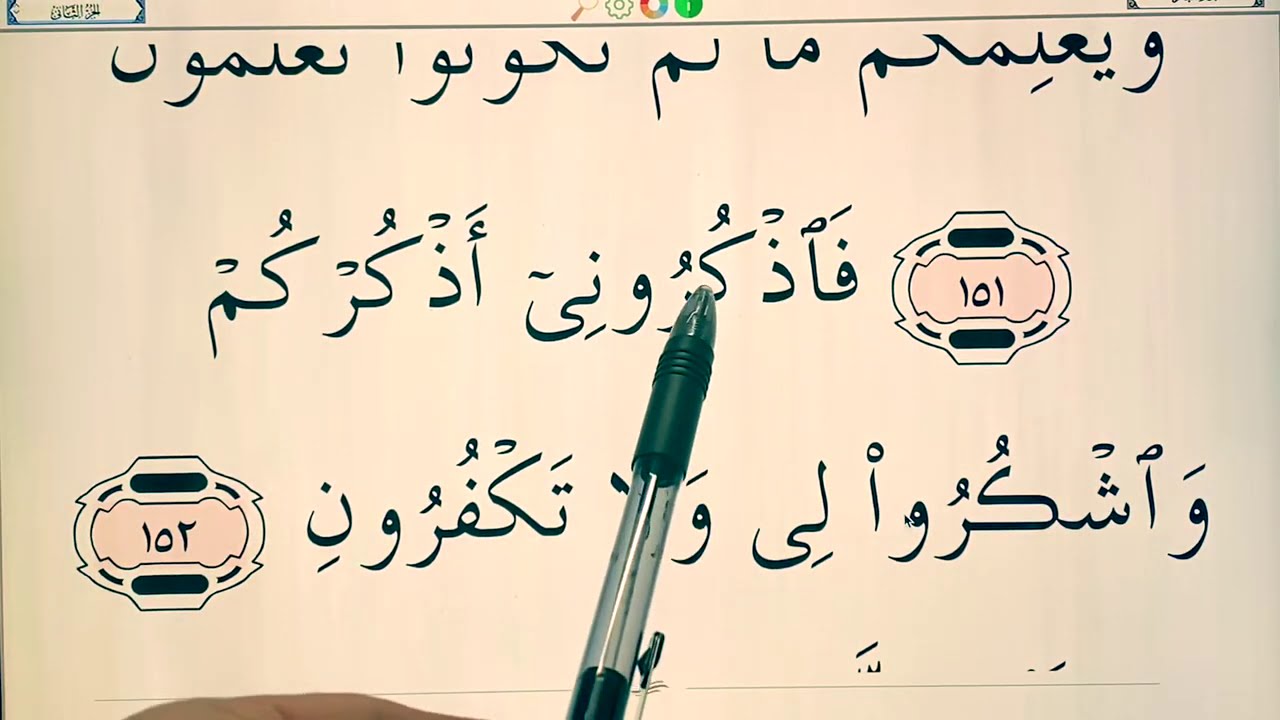 الجزء الثاني
ويعلمكم ما لم تكونوا تعلمون
١٥١ فَٱذْكُرُونِىٓ أَذْكُرْكُمْ
وَٱشْكُرُوا۟ لِى وَلَا تَكْفُرُونِ ١٥٢